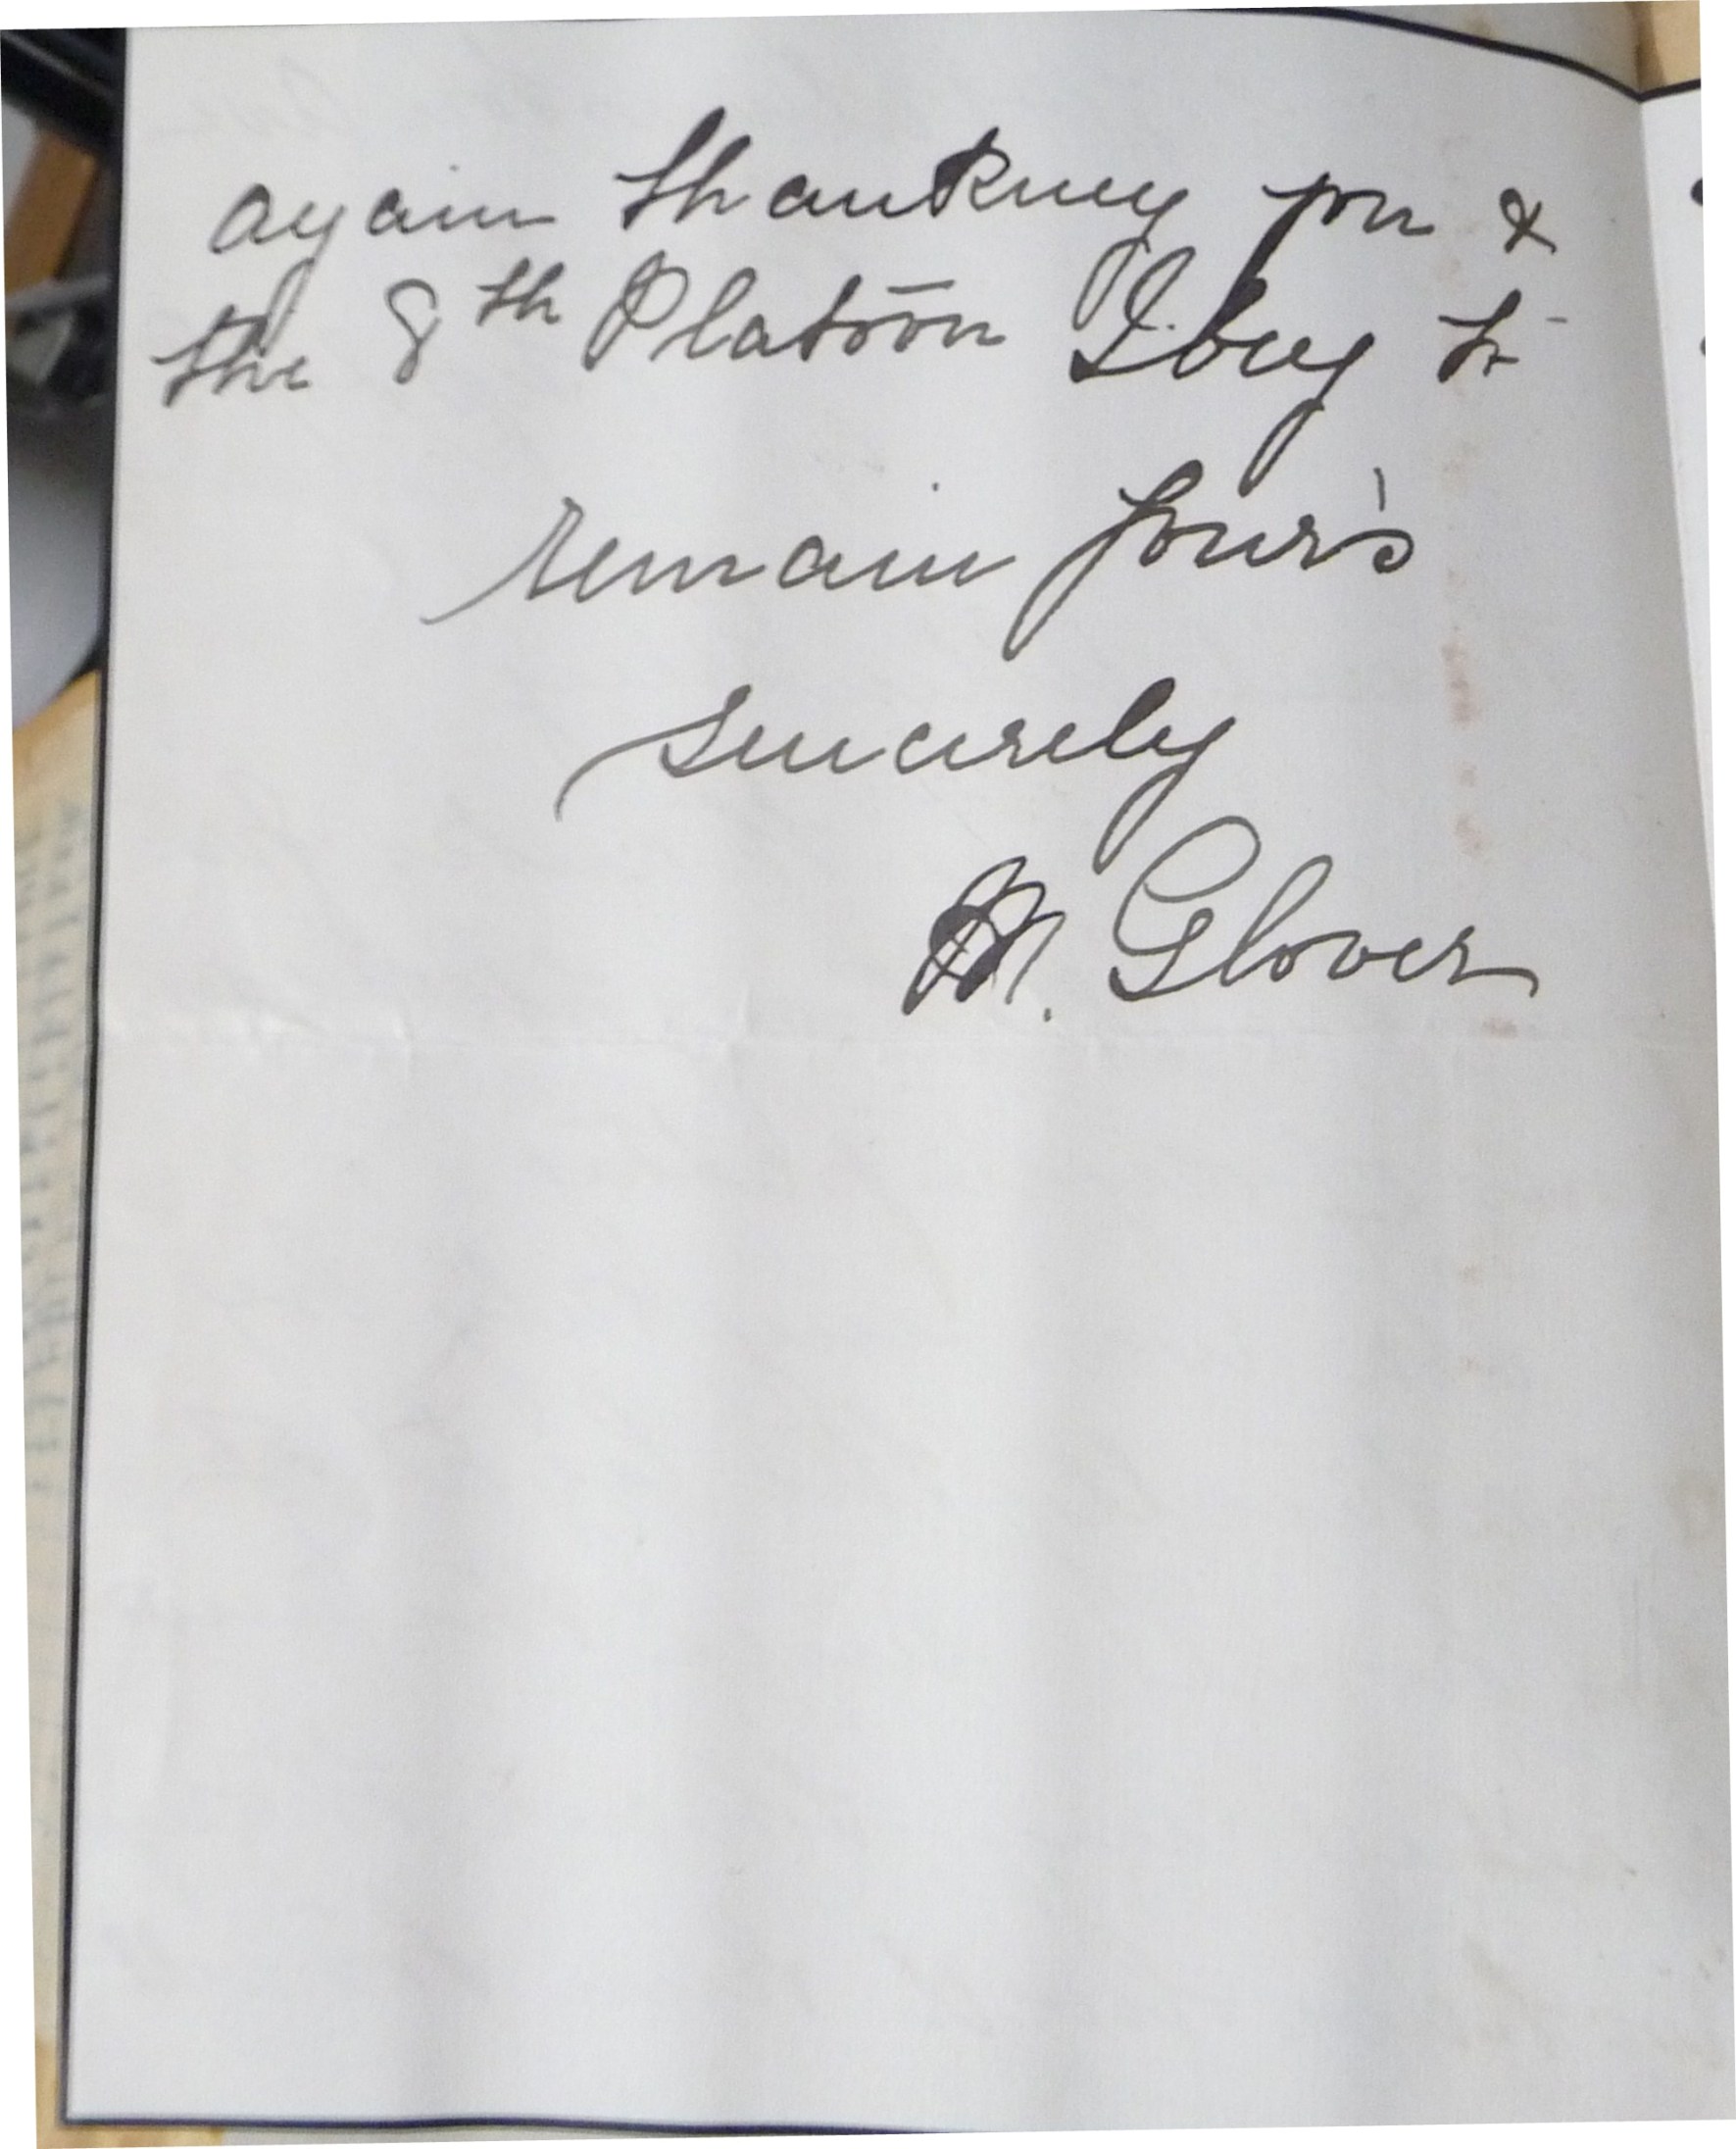 again thanking you &
the 8th Platoon I beg to
remain Your's
sincerely
M. Glover